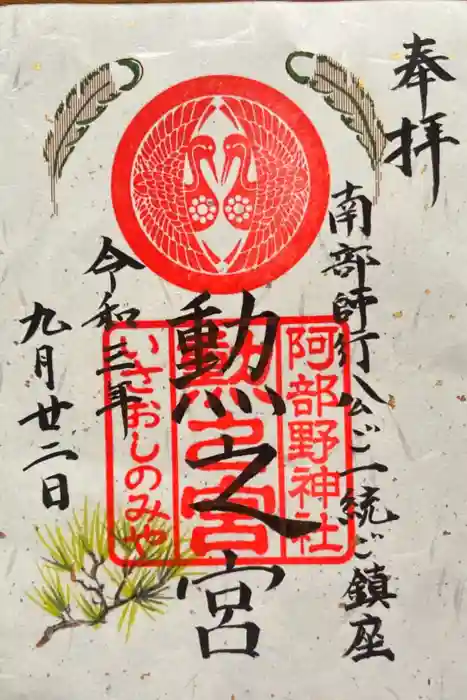 奉拝
南部師行公ご一統ご鎮座
勲之宮
令和三年
九月廿二日
阿部野神社
勲之宮
いさおしのみや